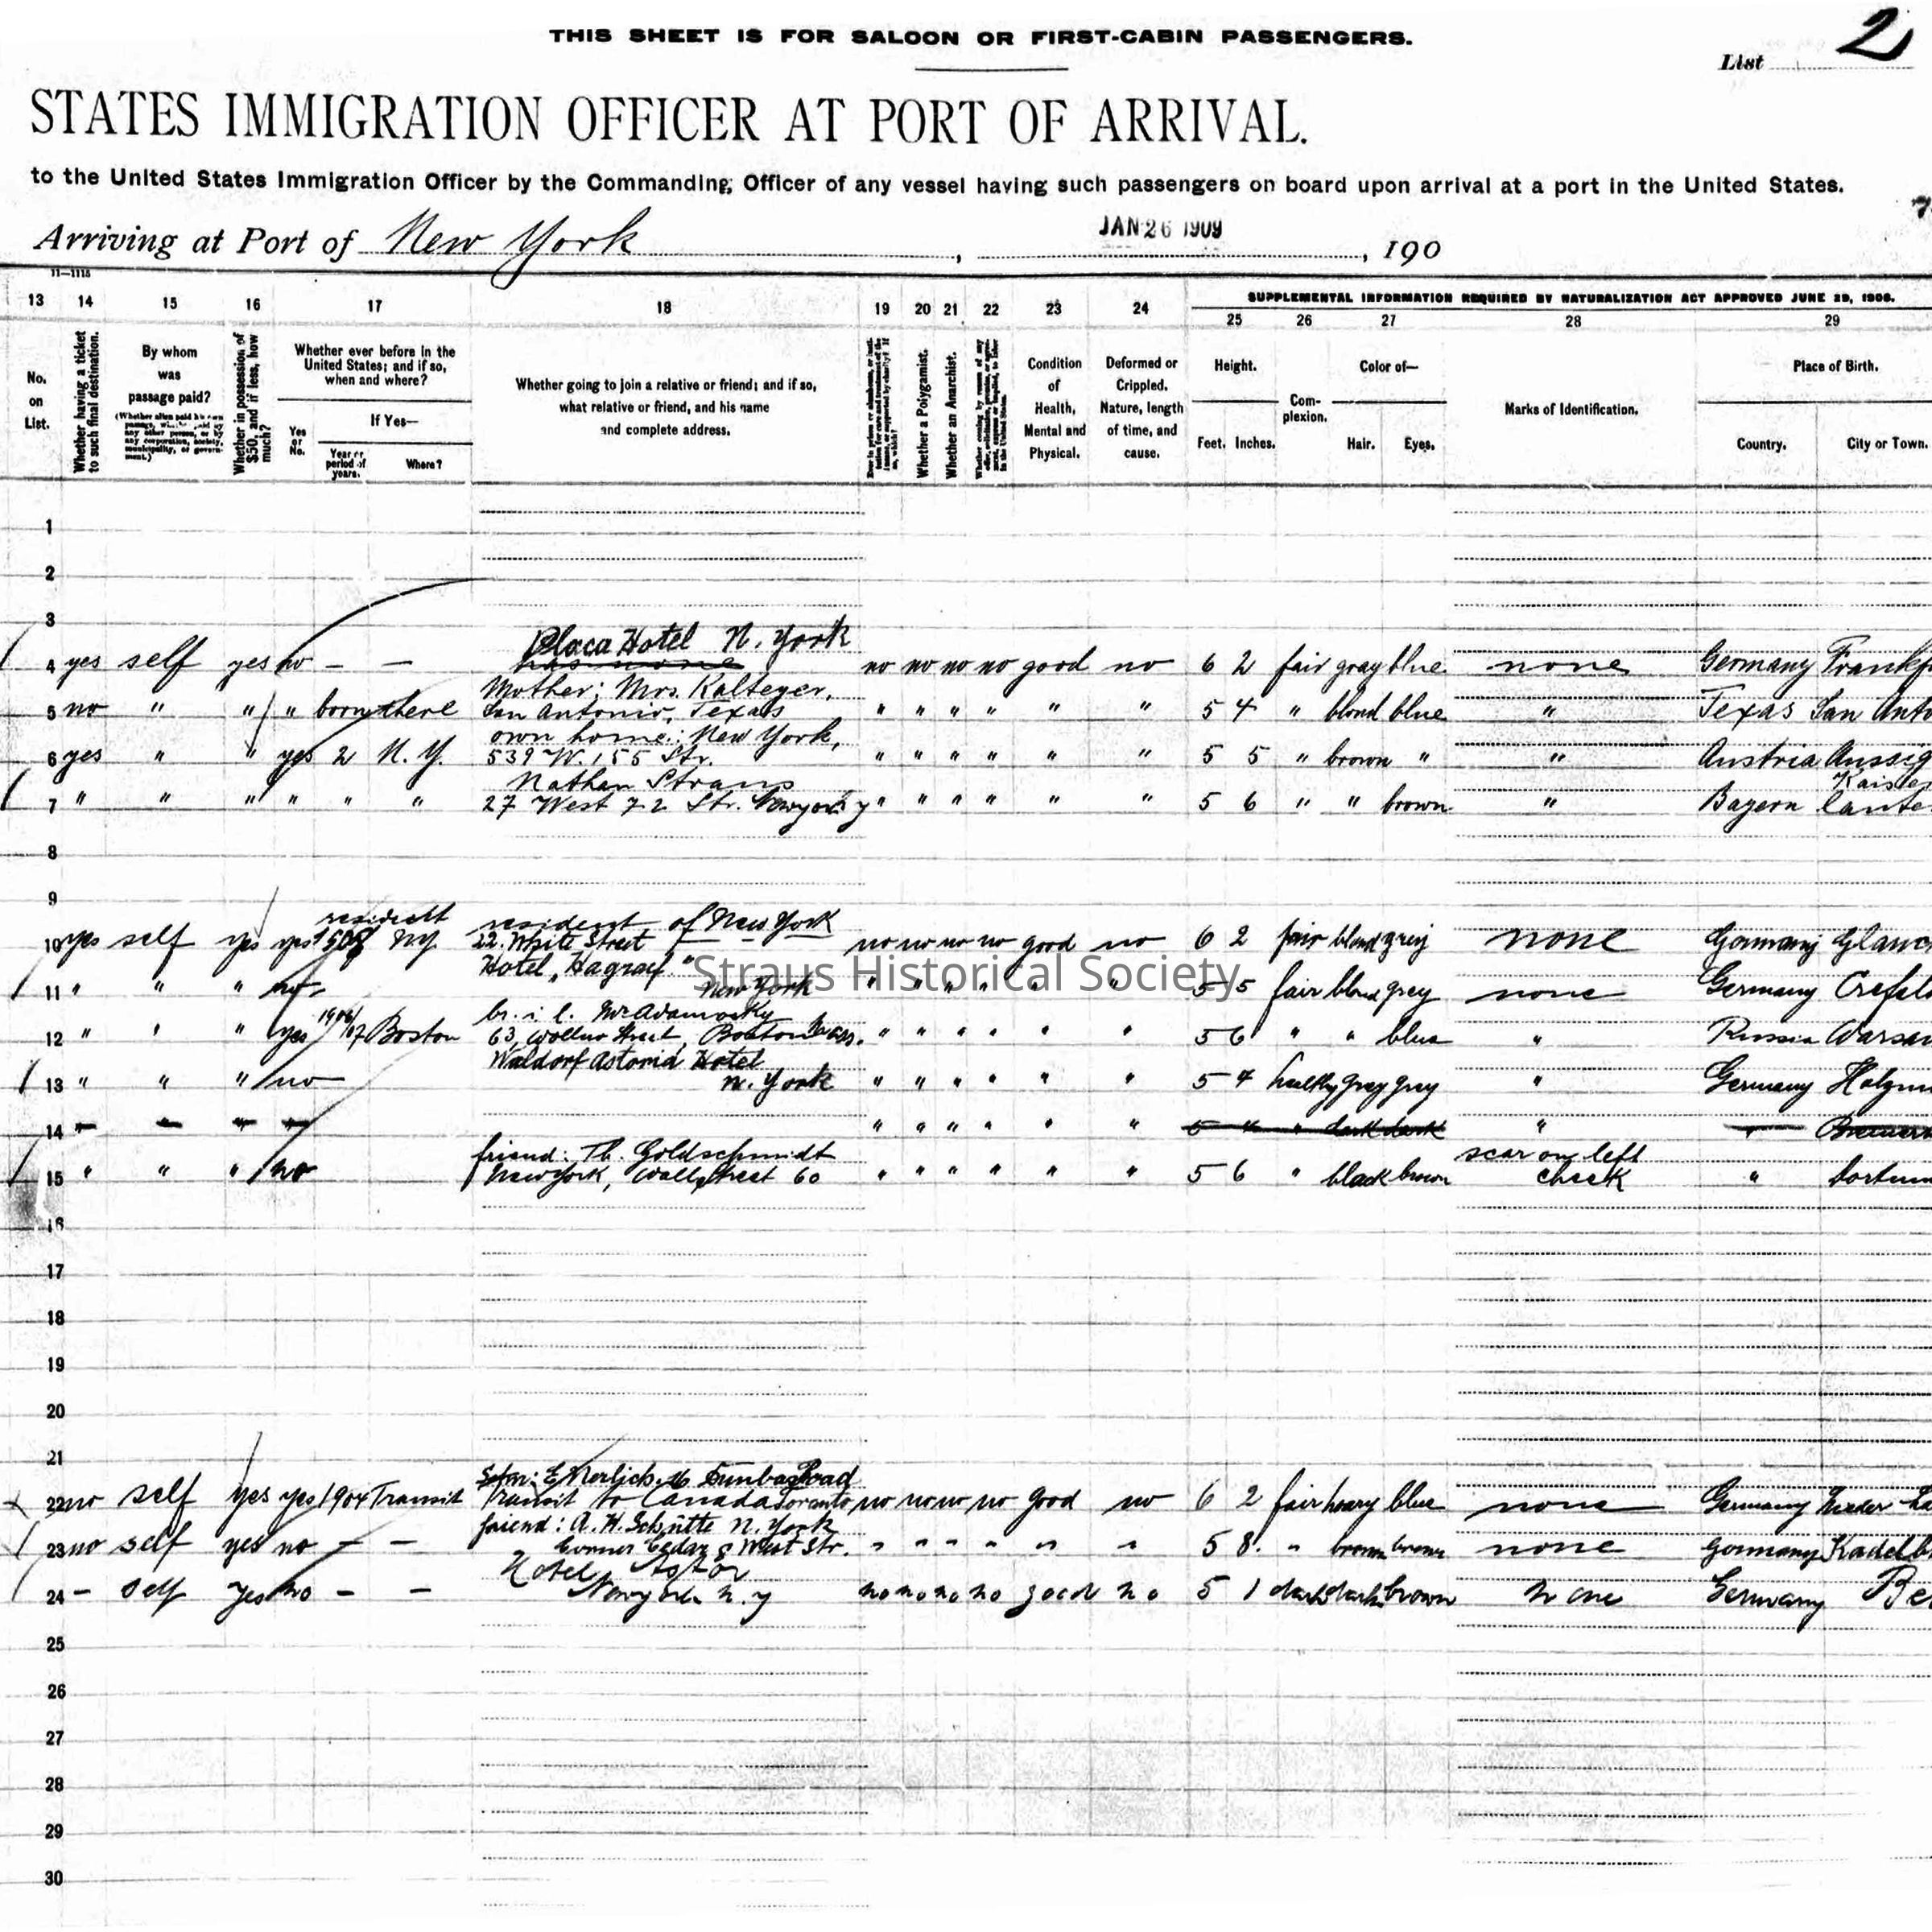 THIS SHEET IS FOR SALOON OR FIRST-CABIN PASSENGERS.
List 2
STATES IMMIGRATION OFFICER AT PORT OF ARRIVAL.
to the United States Immigration Officer by the Commanding Officer of any vessel having such passengers on board upon arrival at a port in the United States.
Arriving at Port of New York, JAN 26 1909, 190
11—1115
13 14 15 16 17 18 19 20 21 22 23 24 SUPPLEMENTAL INFORMATION REQUIRED BY NATURALIZATION ACT APPROVED JUNE 29, 1906.
25 26 27 28 29
No. on List.
Whether having a ticket to such final destination.
By whom was passage paid?
(Whether alien paid his own passage, whether paid by any other person, or by any corporation, society, municipality, or government.)
Whether in possession of $50, and if less, how much?
Whether ever before in the United States; and if so, when and where?
Yes or No.
If Yes—
Year or period of years.
Where?
Whether going to join a relative or friend; and if so, what relative or friend, and his name and complete address.
Whether a Polygamist.
Whether an Anarchist.
Condition of Health, Mental and Physical.
Deformed or Crippled. Nature, length of time, and cause.
Height.
Feet. Inches.
Complexion.
Color of—
Hair. Eyes.
Marks of Identification.
Place of Birth.
Country. City or Town.
1
2
3
Placa Hotel N. York
4 yes self yes no — — has none no no no no good no 6 2 fair gray blue none Germany Frankf
Mother: Mrs. Kalteyer,
5 no " " " born there San Antonio, Texas " " " " " " 5 4 " blond blue " Texas San Anto
own home: New York,
6 yes " " yes 2 N.Y. 539 W. 155 Str. " " " " " " 5 5 " brown " " Austria Aussig
Nathan Straus Kaiser
7 " " " " " " 27 West 72 Str. " " " " " " 5 6 " " brown " Bayern laute
8
9
resident resident of New York
10 yes self yes yes 1908 NY. 22. White Street no no no no good no 6 2 fair blond grey none Germany Glauc
Hotel
11 " " " no New York " " " " " " 5 5 fair blond grey none Germany Crefeld
br. i. l. Mr Adamowsky
12 " " " yes 1906/07 Boston 63, Street, Boston Mass. " " " " " " 5 6 " " blue " Russia Warsaw
Waldorf Astoria Hotel
13 " " " no N. York " " " " " " 5 4 healthy grey grey " Germany Holzm
14 " " " " " " " " " " 5 4 " dark dark " "
friend: Th. Goldschmidt scar on left
15 " " " no New York, Wall Street 60 " " " " " " 5 6 " black brown cheek " Dortm
16
17
18
19
20
21
22 no self yes yes 1904 Transit Transit to Canada Toronto no no no no good no 6 2 fair blue none Germany Nieder
friend: A. H. Schütte N. York
23 no self yes no — — Corner Cedar & West Str. " " " " " " 5 8. " brown brown none Germany Kadelb
Hotel Astor
24 — self yes no — — New York N.Y no no no no good no 5 1 dark dark brown none Germany Be
25
26
27
28
29
30
Straus Historical Society